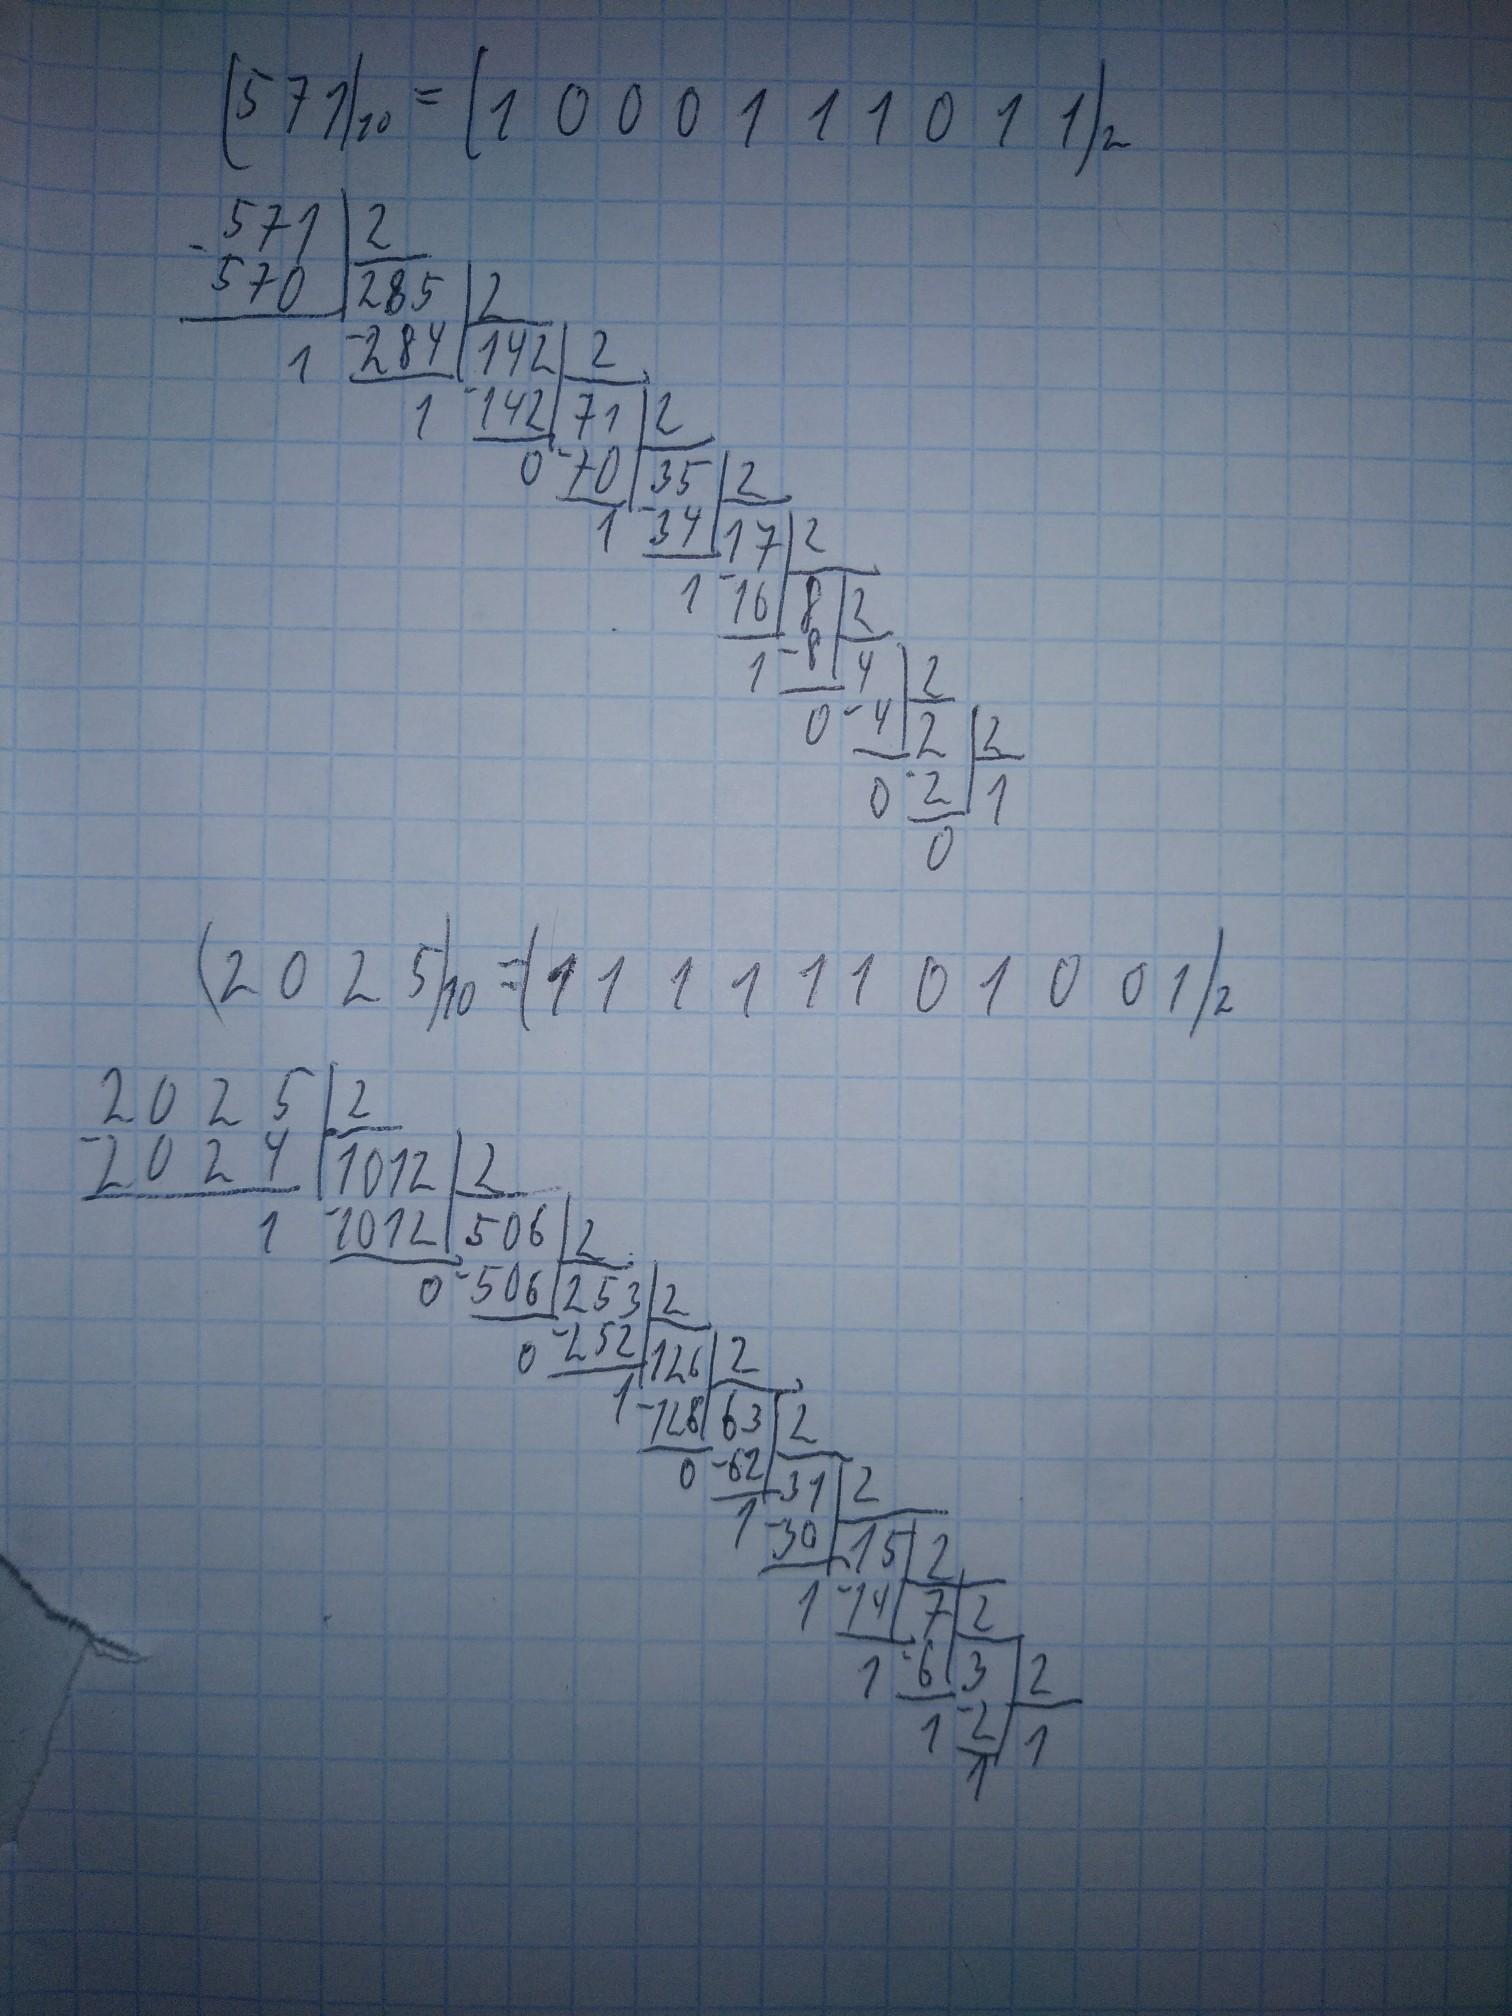 (571)₁₀ = (1 0 0 0 1 1 1 0 1 1)₂
571 | 2
-570 | 285 | 2
1 -284 | 142 | 2
1 -142 | 71 | 2
0 -70 | 35 | 2
1 -34 | 17 | 2
1 -16 | 8 | 2
1 -8 | 4 | 2
0 -4 | 2 | 2
0 -2 | 1
0
(2 0 2 5)₁₀ = (1 1 1 1 1 1 0 1 0 0 1)₂
2 0 2 5 | 2
-2 0 2 4 | 1012 | 2
1 -1012 | 506 | 2
0 -506 | 253 | 2
0 -252 | 126 | 2
1 -126 | 63 | 2
0 -62 | 31 | 2
1 -30 | 15 | 2
1 -14 | 7 | 2
1 -6 | 3 | 2
1 -2 | 1
1